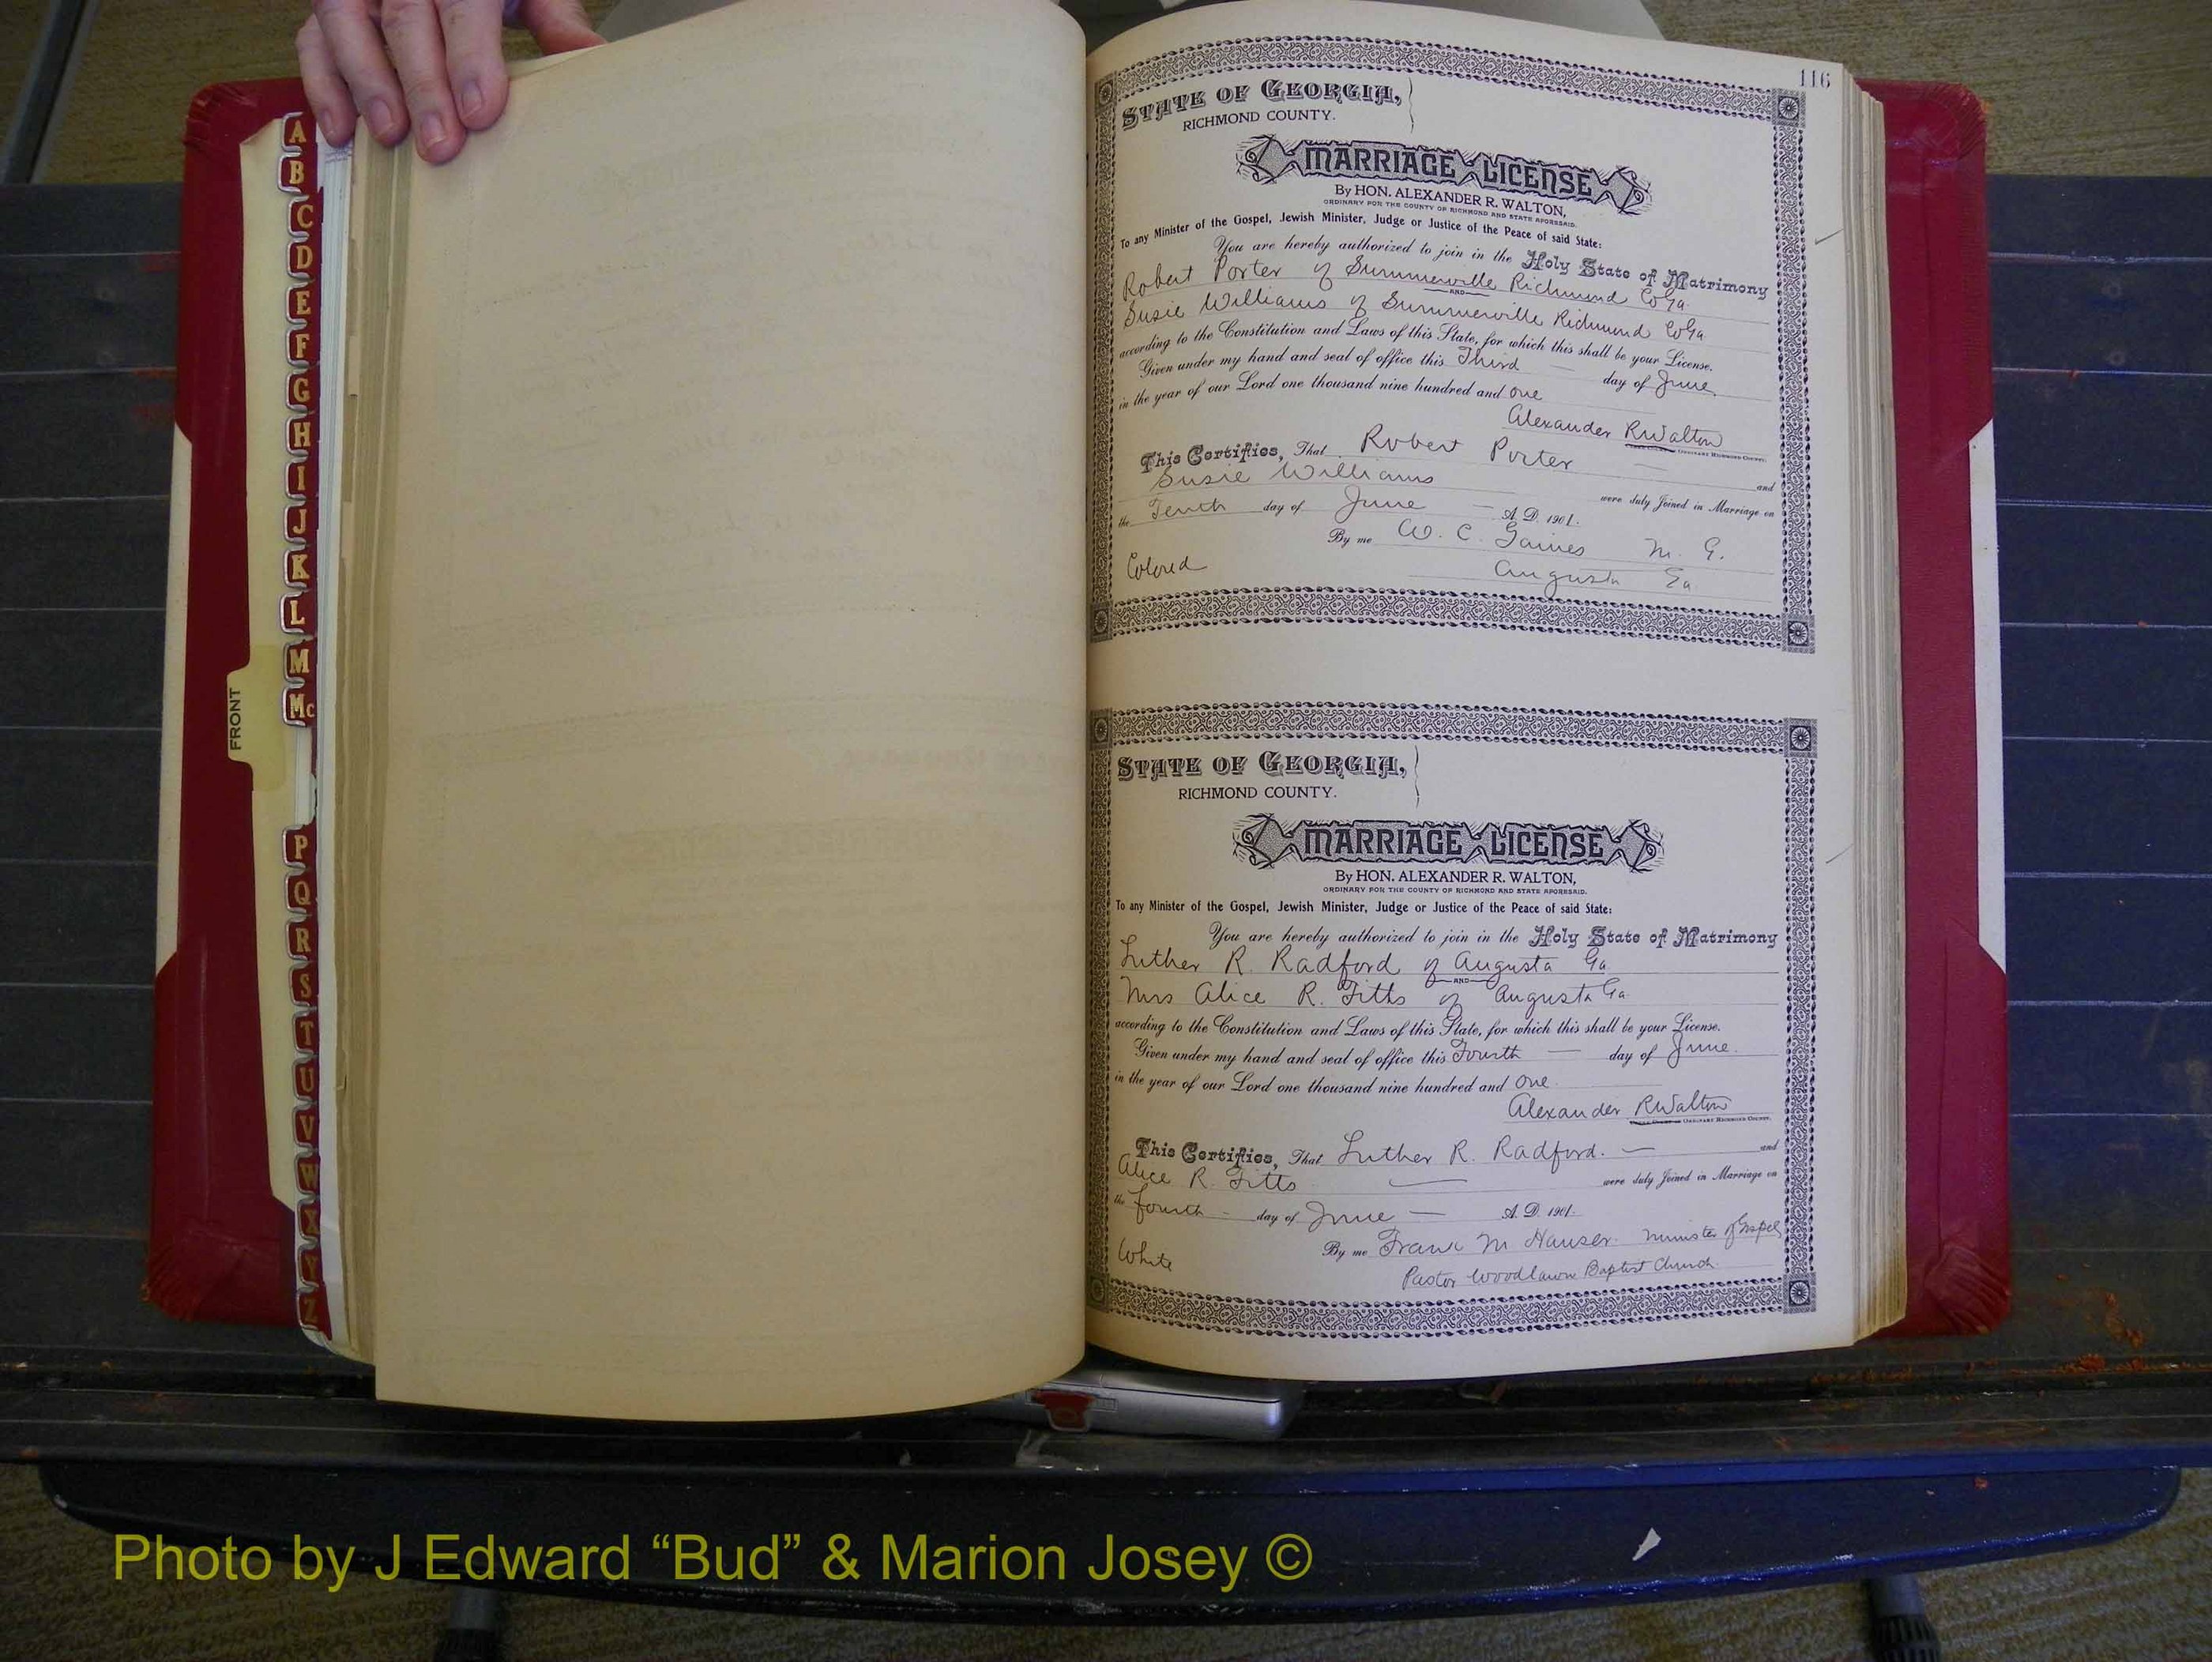 A
B
C
D
E
F
G
H
I
J
K
L
M
Mc
FRONT
P
Q
R
S
T
U
V
W
X
Y
Z
116
STATE OF GEORGIA,
RICHMOND COUNTY.
MARRIAGE LICENSE
By HON. ALEXANDER R. WALTON,
ORDINARY FOR THE COUNTY OF RICHMOND AND STATE AFORESAID.
To any Minister of the Gospel, Jewish Minister, Judge or Justice of the Peace of said State:
You are hereby authorized to join in the Holy State of Matrimony
Robert Porter of Summerville Richmond Co Ga
AND
Susie Williams of Summerville Richmond Co Ga
according to the Constitution and Laws of this State, for which this shall be your License.
Given under my hand and seal of office this Third — day of June
in the year of our Lord one thousand nine hundred and one
Alexander R Walton
ORDINARY RICHMOND COUNTY.
This Certifies, That Robert Porter — and
Susie Williams were duly Joined in Marriage on
the Tenth day of June — A. D. 1901.
By me W. C. Gaines M. G.
Colored Augusta Ga
STATE OF GEORGIA,
RICHMOND COUNTY.
MARRIAGE LICENSE
By HON. ALEXANDER R. WALTON,
ORDINARY FOR THE COUNTY OF RICHMOND AND STATE AFORESAID.
To any Minister of the Gospel, Jewish Minister, Judge or Justice of the Peace of said State:
You are hereby authorized to join in the Holy State of Matrimony
Luther R. Radford of Augusta Ga
AND
Mrs Alice R. Fitts of Augusta Ga
according to the Constitution and Laws of this State, for which this shall be your License.
Given under my hand and seal of office this Fourth — day of June.
in the year of our Lord one thousand nine hundred and one
Alexander R Walton
ORDINARY RICHMOND COUNTY.
This Certifies, That Luther R. Radford. — and
Alice R. Fitts — were duly Joined in Marriage on
the fourth — day of June — A. D. 1901.
By me Frank M Hauser. Minister of Gospel
White Pastor Woodlawn Baptist Church.
Photo by J Edward “Bud” & Marion Josey ©